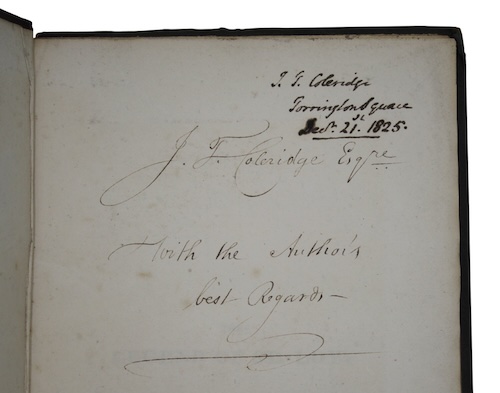 J. T. Coleridge
Torrington Square
Decr. 21st. 1825.
J. T. Coleridge Esqre
With the Author's
best Regards